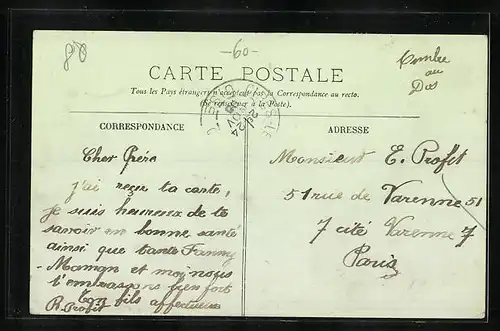 80
-60-
Timbre
au
Dos
CARTE POSTALE
Tous les Pays étrangers n'acceptent pas la Correspondance au recto.
(Se renseigner à la Poste).
CORRESPONDANCE
ADRESSE
Cher Père
j'ai reçu ta carte,
je suis heureux de te
savoir en bonne santé
ainsi que tante Fanny
- Maman et moi nous
t'embrassons bien fort
Ton fils affectueux
R. Profit
Monsieur E. Profit
51 rue de Varenne 51
7 cité Varenne 7
Paris